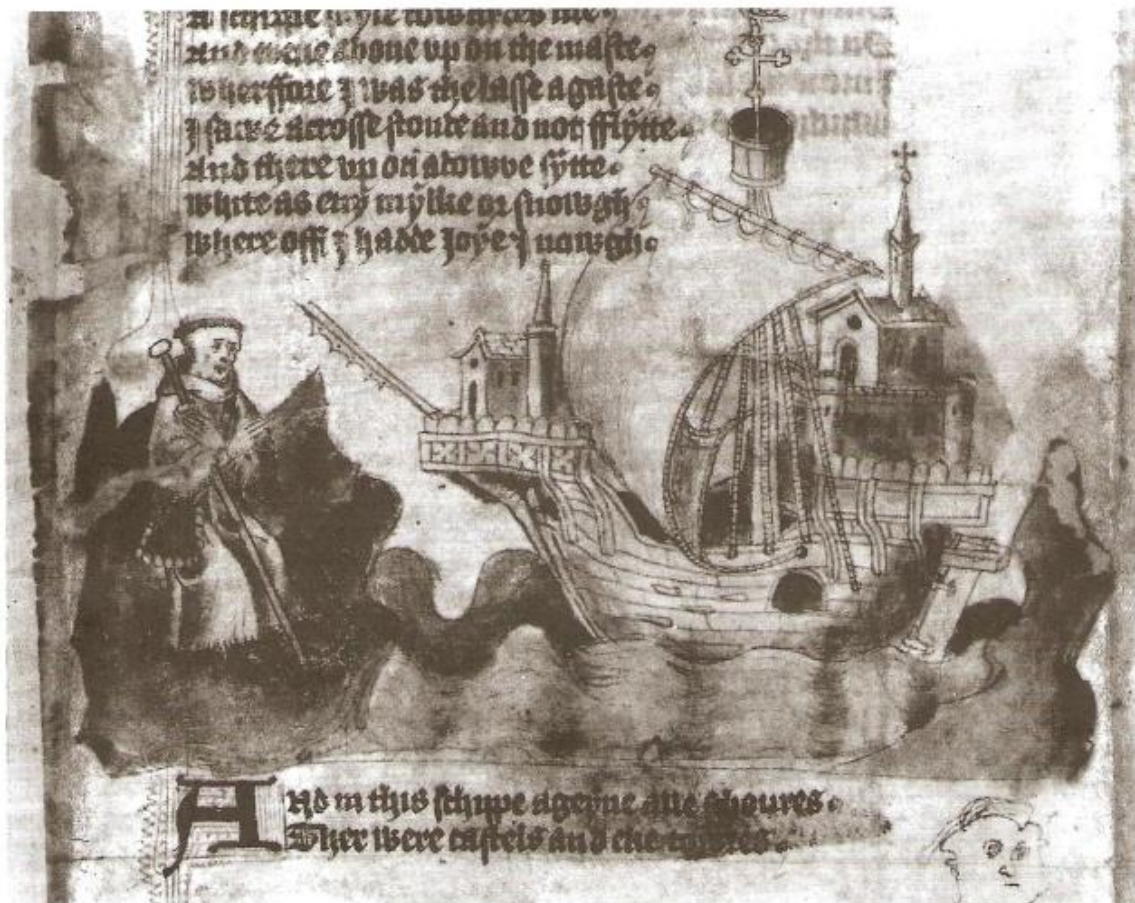 A schippe seyle towardes me
And evene above up on the maste
wherffore I was the lasse agaste
I sawe acrosse stonde and not fflytte
And there up on adowve sytte
white as eny mylke or snowgh
where off I hadde Joye I nowgh
And in this schype ageyne alle shoures
Ther were castels and eke towres